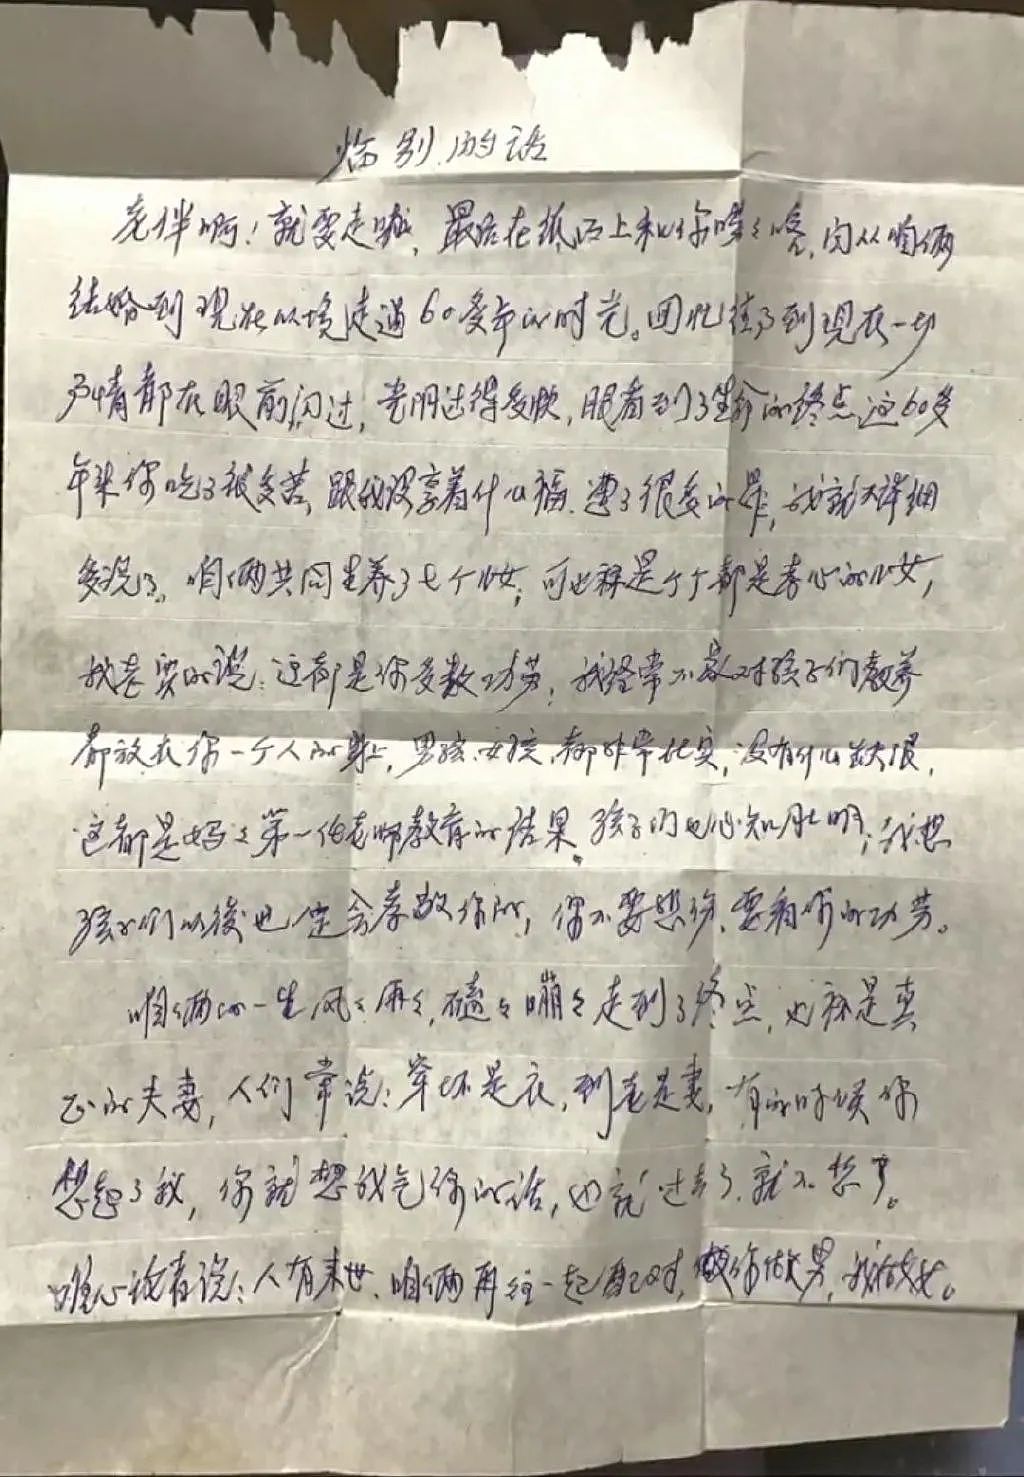 临别的话
老伴啊！就要走喊，最后在纸上和你唠々嗑，自从咱俩
结婚到现在以境走过60多年的时光。回忆往事到现在一步
步情都在眼前闪过，光阴过得多快，眼看到了生命的终点，这60多
年来你吃了很多苦，跟我没享着什么福，遭了很多的罪，我就不详细
多说了。咱俩共同生养了七个儿女，可也称是个个都是孝心的儿女，
我老实的说：这都是你多数功劳，我经常不家对孩子们教养
都放在你一个人的身上，男孩、女孩，都非常忠实，没有什么缺限，
这都是妈々第一位老师教育的结果。孩子们也心知肚明，我想
孩子们以後也一定会孝敬你的，你不要想我，要看你的功劳。
咱俩的一生风々雨々，磕々嘣々走到了终点，也称是真
正的夫妻，人们常说：穿坏是衣，到老是妻，有的时候你
想起了我，你就想我气你的话，也就过去了，就不想了。
唯心论者说：人有来世，咱俩再往一起配对，你做男，我做女。